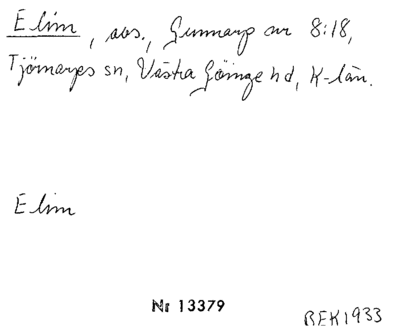 Elim, avs., Gunnarp nr 8:18,
Tjörnarps sn, Västra Göinge hd, K-län.
Elim
Nr 13379
BEK1933